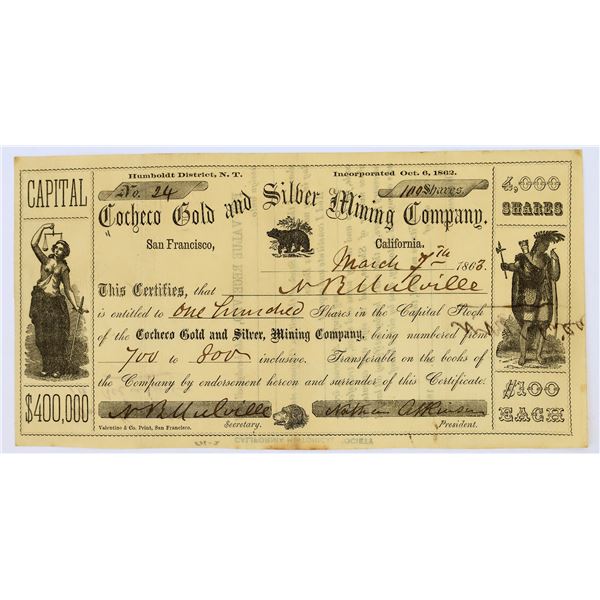 Humboldt District, N. T.
Incorporated Oct. 6, 1862.
CAPITAL
No. 24
100 Shares
4,000
SHARES
Cocheco Gold and Silver Mining Company.
San Francisco,
California.
March 7th 1863.
This Certifies, that N B Mulville
is entitled to One hundred Shares in the Capital Stock
of the Cocheco Gold and Silver, Mining Company, being numbered from
700 to 800 inclusive. Transferable on the books of
the Company by endorsement hereon and surrender of this Certificate.
$400,000
$100
EACH
N B Mulville
Nathan Atkinson
Valentine & Co. Print, San Francisco.
Secretary.
President.